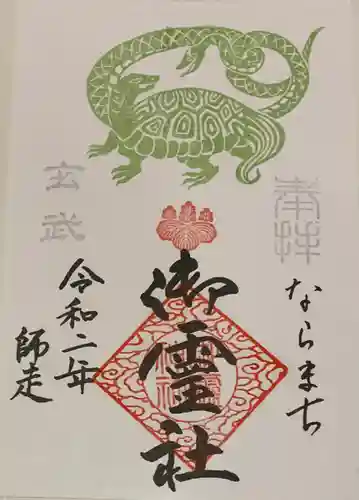 奉拝
ならまち
御霊社
玄武
令和二年
師走